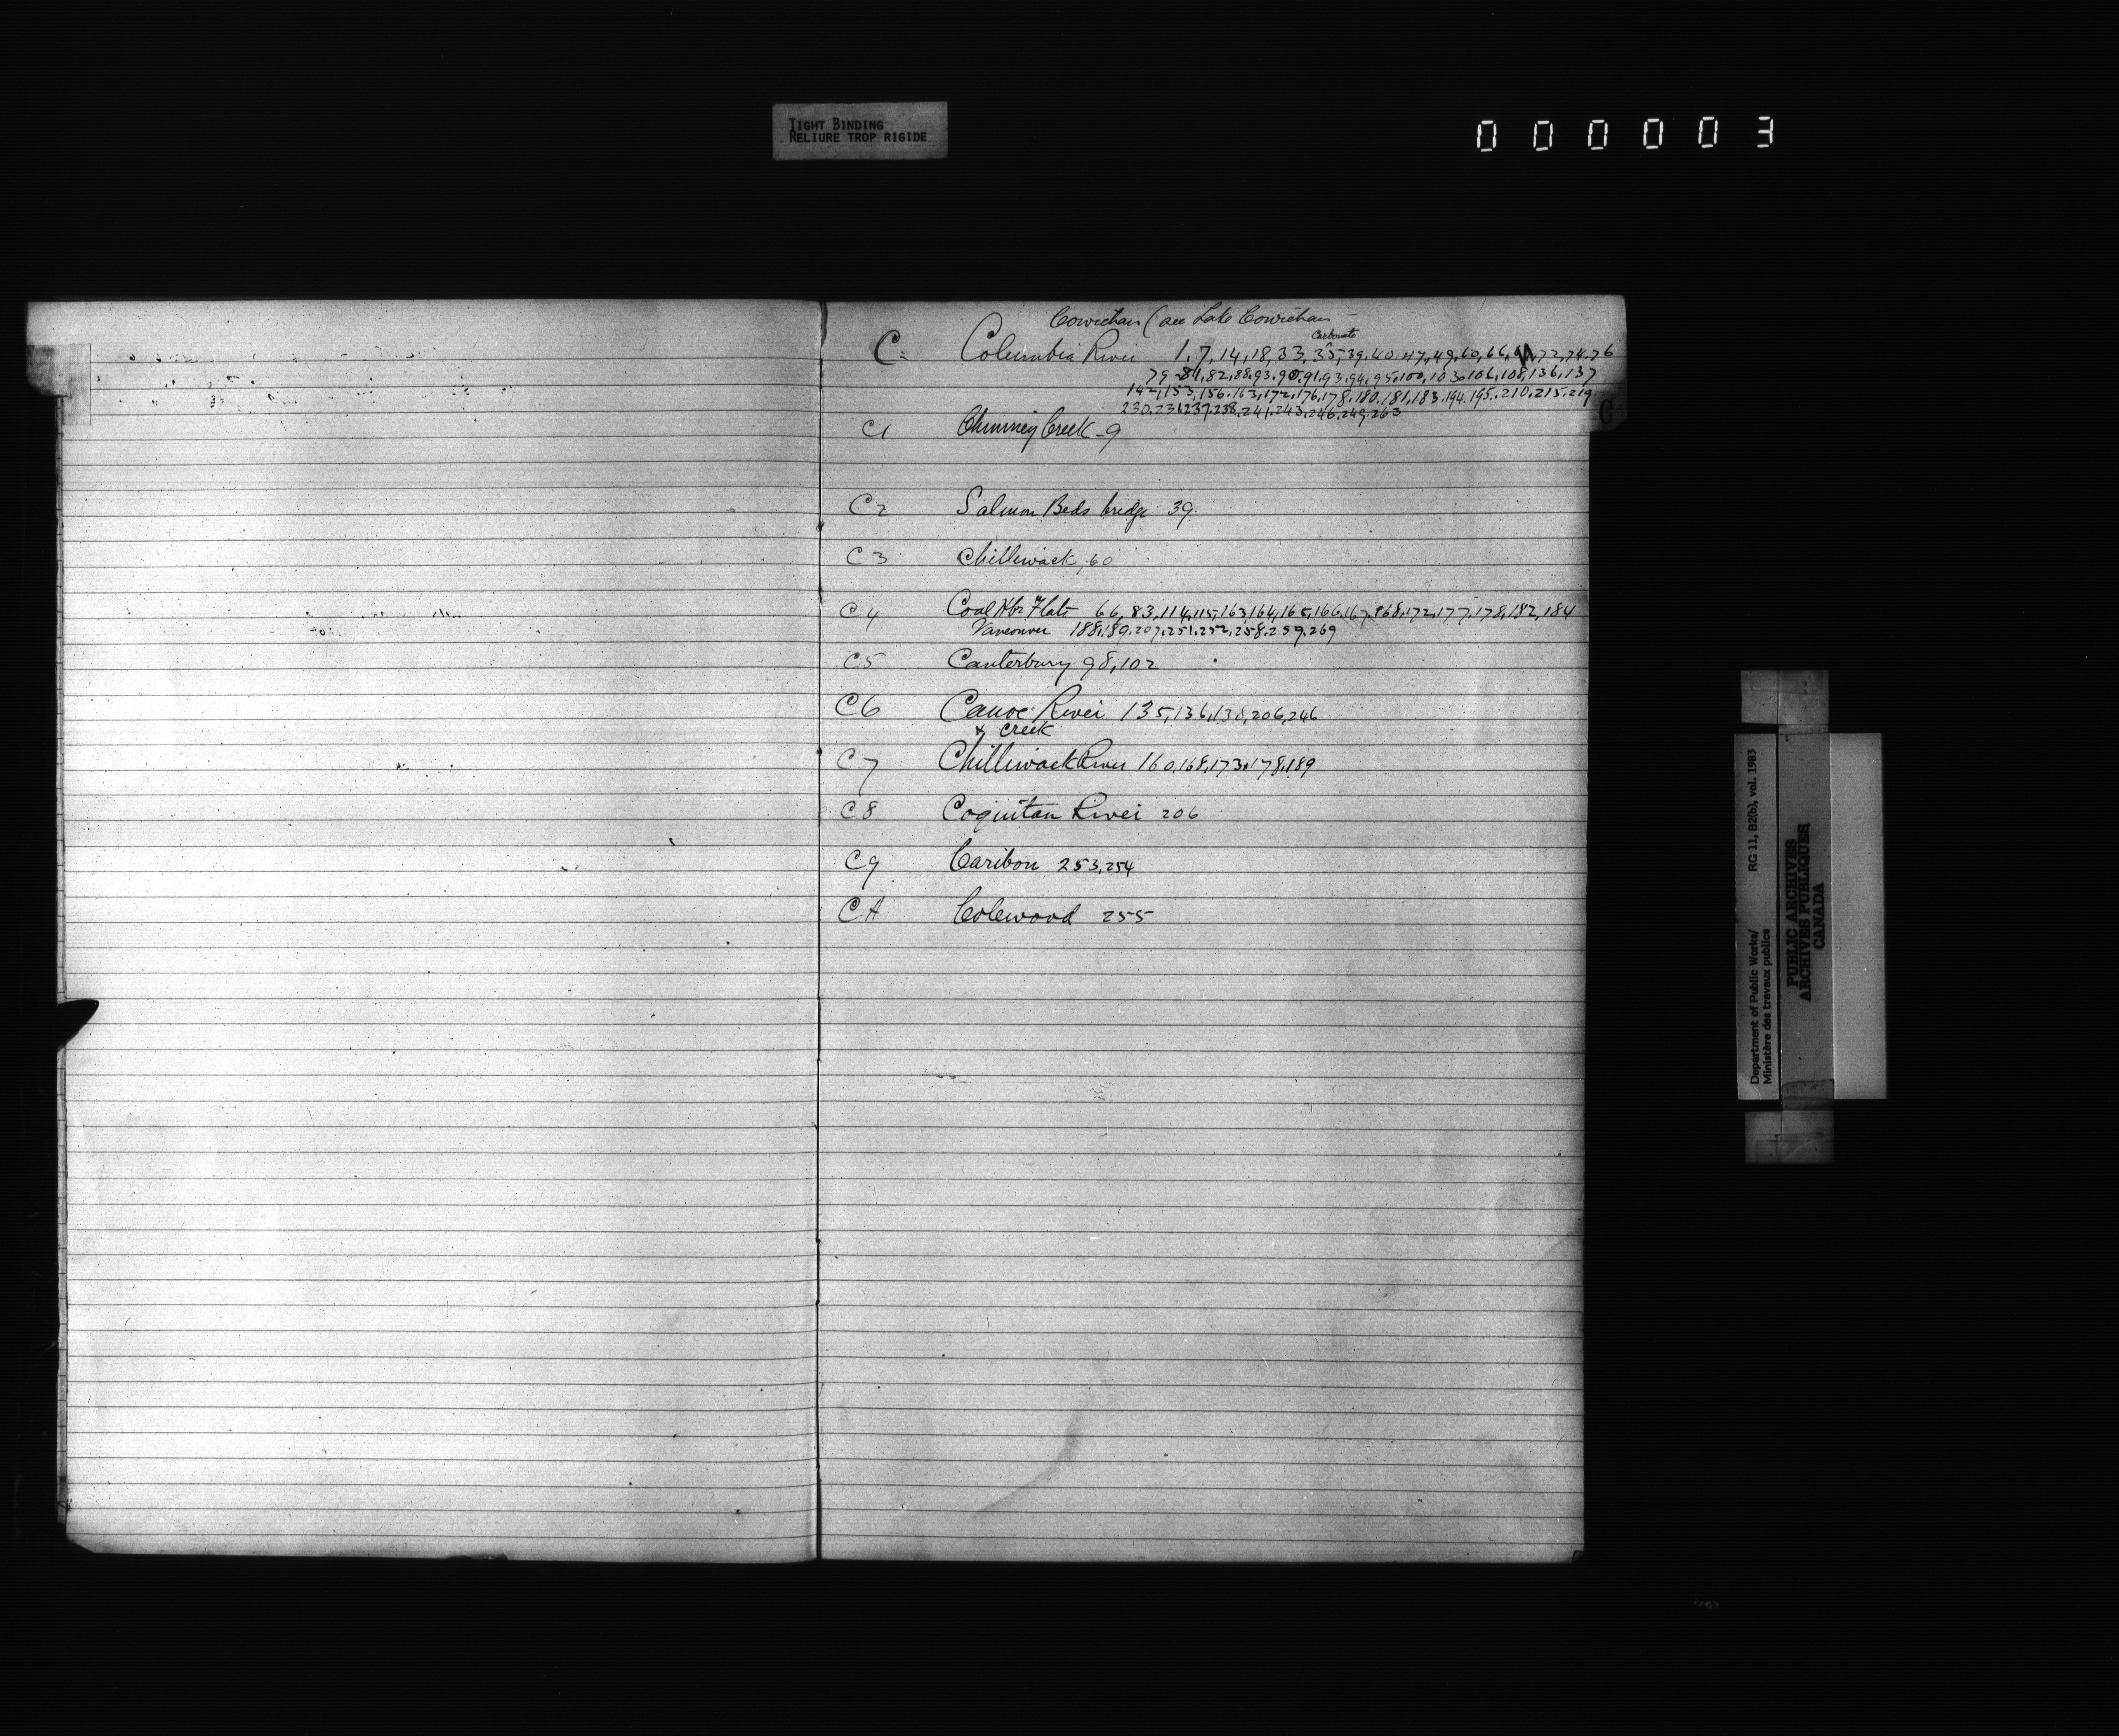 TIGHT BINDING
RELIURE TROP RIGIDE
000003
Cowichan (see Lake Cowichan
Carbonate
C. Columbia River 1, 7, 14, 18, 33, 35, 39, 40, 47, 49, 60, 66, 72, 74, 76
79, 81, 82, 88, 93, 90, 91, 93, 94, 95, 100, 103, 106, 108, 136, 137
142, 153, 156, 163, 172, 176, 178, 180, 181, 183, 194, 195, 210, 215, 219
230, 231, 237, 238, 241, 243, 246, 249, 263
C
C1 Chimney Creek - 9
C2 Salmon Beds bridge 39.
C3 Chilliwack, 60
C4 Coal Hbr Flats 66, 83, 114, 115, 163, 164, 165, 166, 167, 168, 172, 177, 178, 182, 184
Vancouver 188, 189, 207, 251, 252, 258, 259, 269
C5 Canterbury 98, 102
C6 Canoe River 135, 136, 138, 206, 246
& Creek
C7 Chilliwack River 160, 168, 173, 178, 189
C8 Coquitlan River 206
C9 Caribou 253, 254
CA Colewood 255
Department of Public Works/
Ministère des travaux publics
RG 11, B2(b), vol. 1983
PUBLIC ARCHIVES
ARCHIVES PUBLIQUES
CANADA